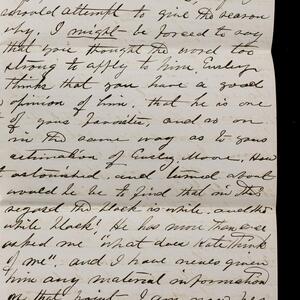 should attempt to give the reason
why, I might be forced to say
that you thought the word too
strong to apply to him. Ensley
thinks that you have a good
opinion of him, that he is one
of your favorites, and so on
in the same way as to your
estimation of Ensley Moore. How
astonished, and turned about
would he be to find that in this
regard the black is white, and the
white black! He has more than once
asked me "what does Kate think
of me" and I have never given
him any material information
on that point. I am